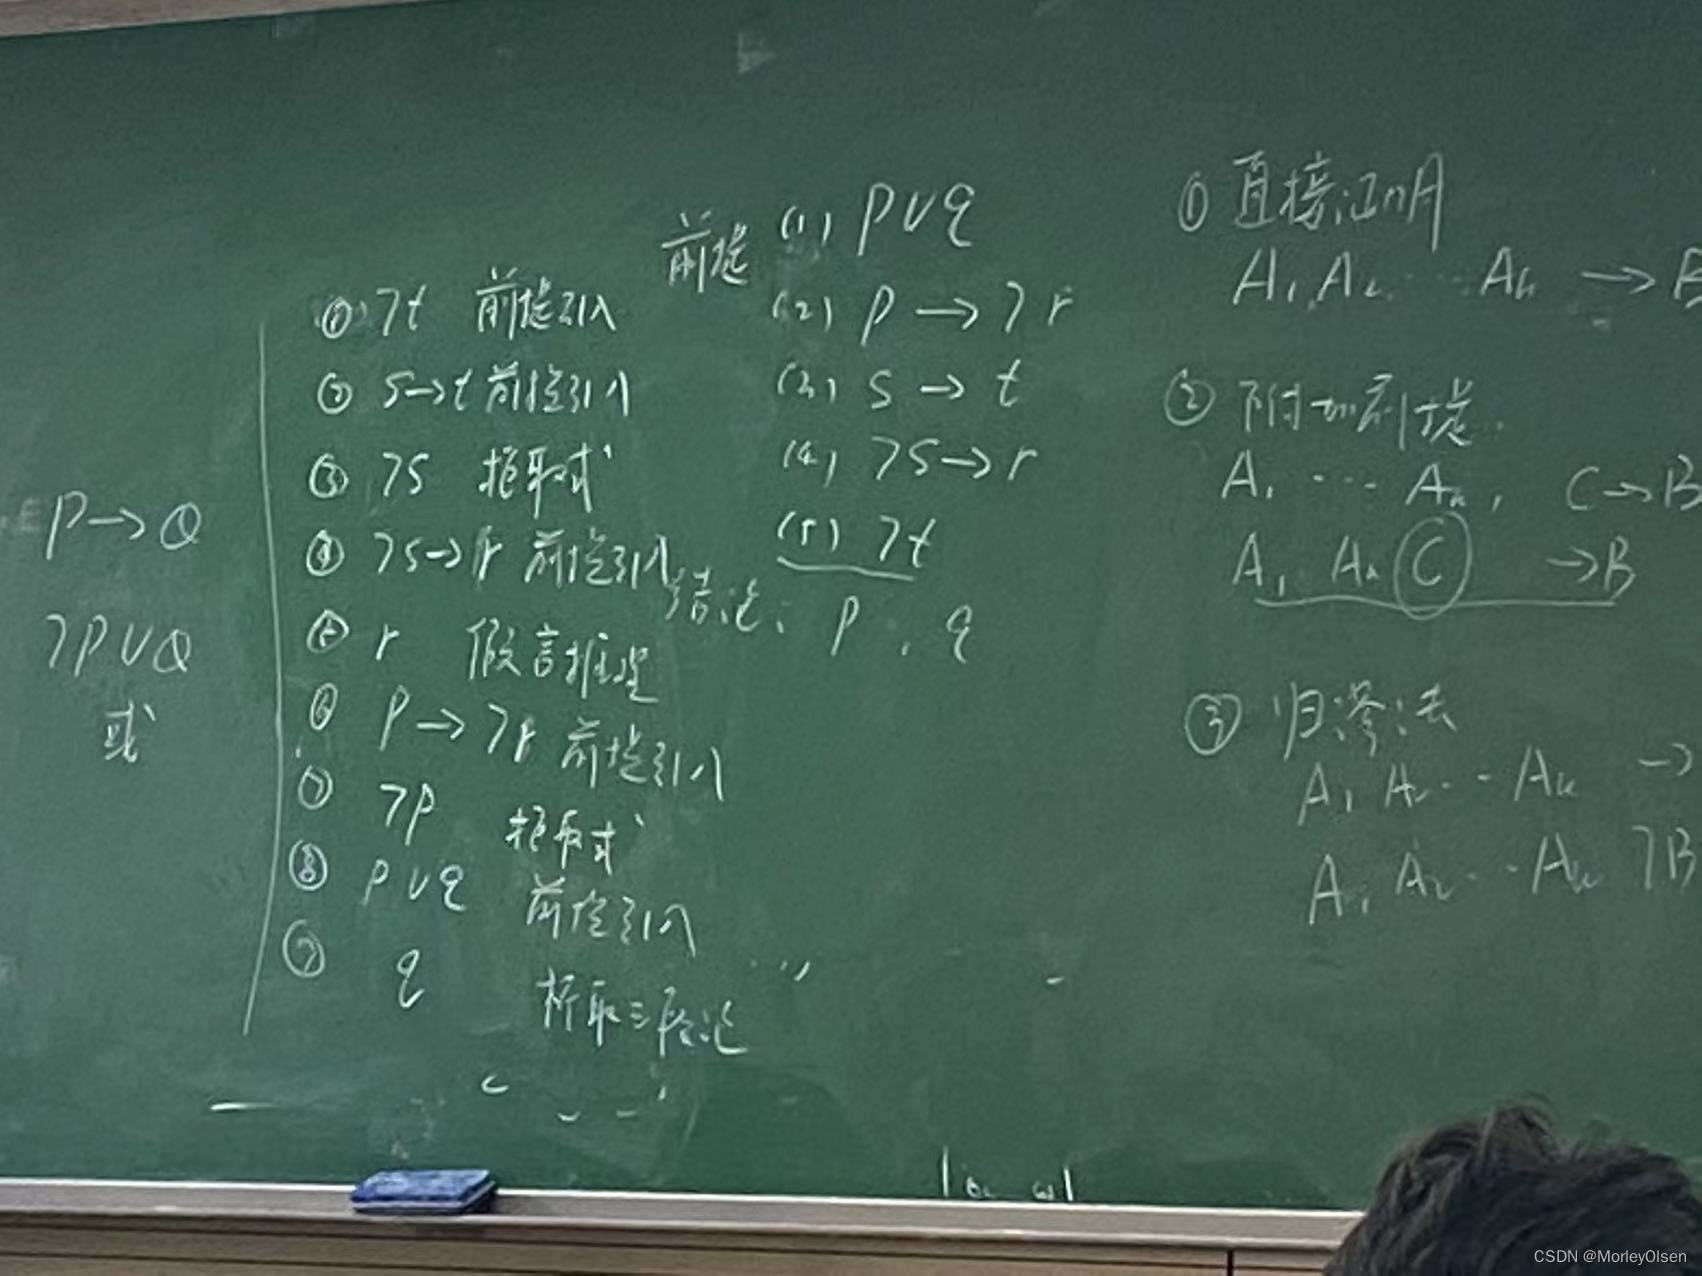 P→Q
¬P∨Q
或
① ¬t 前提引入
② s→t 前提引入
③ ¬s 拒取式
④ ¬s→r 前提引入
⑤ r 假言推理
⑥ p→¬r 前提引入
⑦ ¬p 拒取式
⑧ p∨q 前提引入
⑨ q 析取三段论
前提 (1) p∨q
(2) p→¬r
(3) s→t
(4) ¬s→r
(5) ¬t
结论: p, q
① 直接证明
A₁,A₂ ... Aₖ → B
② 附加前提
A₁ ... Aₖ, C→B
A₁ Aₖ C →B
③ 归谬法
A₁ A₂ ... Aₖ →
A₁ A₂ ... Aₖ ¬B
CSDN @MorleyOlsen